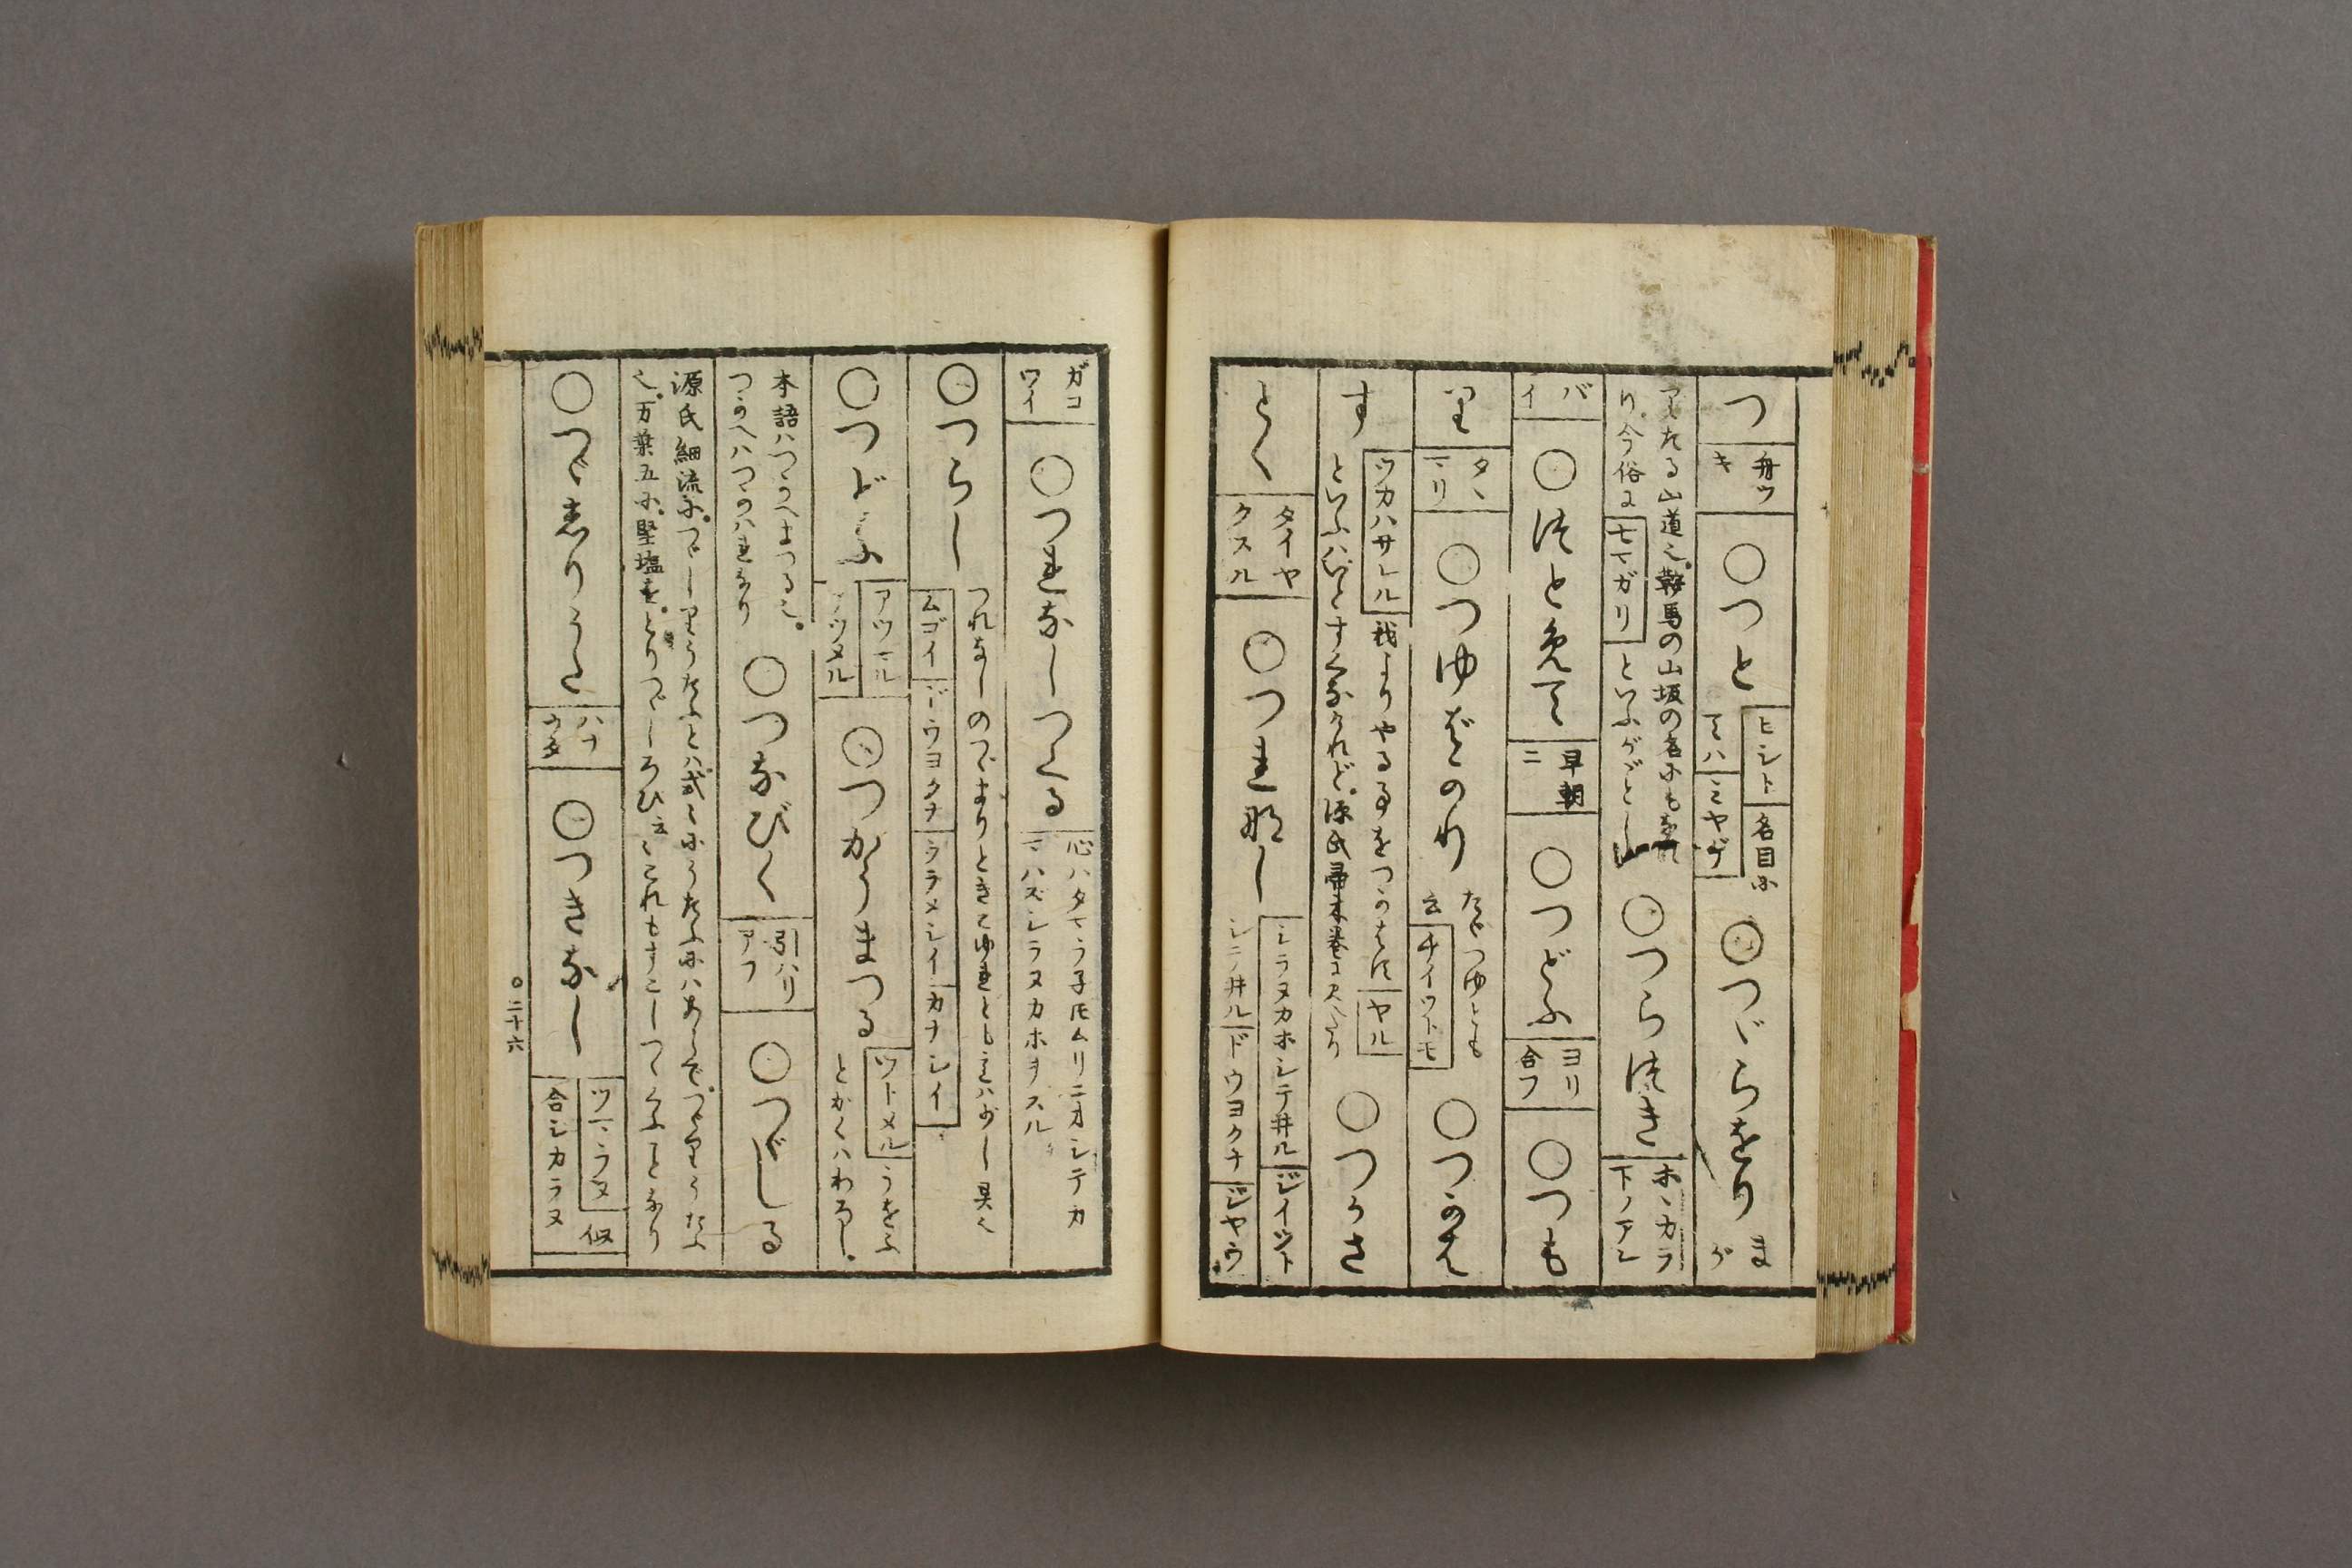 つ 舟ツキ ○つと ヒシト 名目にてハ ミヤゲ ○つゞらをり まが
りたる山道也。鞍馬の山坂の名にもあれ
り。今俗に 七マガリ といふがごとし ○つらつき ホヽカラ下ノアシ
バイ ○つとめて 早朝ニ ○つどふ ヨリ合フ ○つも
り タヽマリ ○つゆばかり たゞつゆとも云 チイツトモ ○つかは
す ツカハサレル 我よりやる事をつかはす ヤル
といふハいとすくなけれど。源氏帚木巻に見へたり ○つかさ
とく タイヤクスル ○つれなし シラヌカホシテ井ル ジイツト
シテ井ル ドウヨクナ ジヤウ
ガコワイ ○つれなしつくる 心ハタマラ子ドムリニオシテカ
マハズシラヌカホヲスル
○つらし つれなしのつまりときこゆれどもこハ少し異也
ムゴイ ドーウヨクナ ウラメシイ カナシイ
○つどふ アツマル アツメル ○つかうまつる ツトメル うをふ
とかくハわろし。
本語ハつかへまつる也。
つかへハつかハれなり ○つなびく 引ハリアフ ○つゞしる
源氏細流に。つゞしりうたふとハ式々にうたふにハあらで。つゞりうたふ
也。万葉五に。堅塩を。とりつゞしろひ云々これもすこしつゝくふことなり
○つゞしりうた ハナウタ ○つきなし ツマラヌ 似
合シカラヌ
○二十六